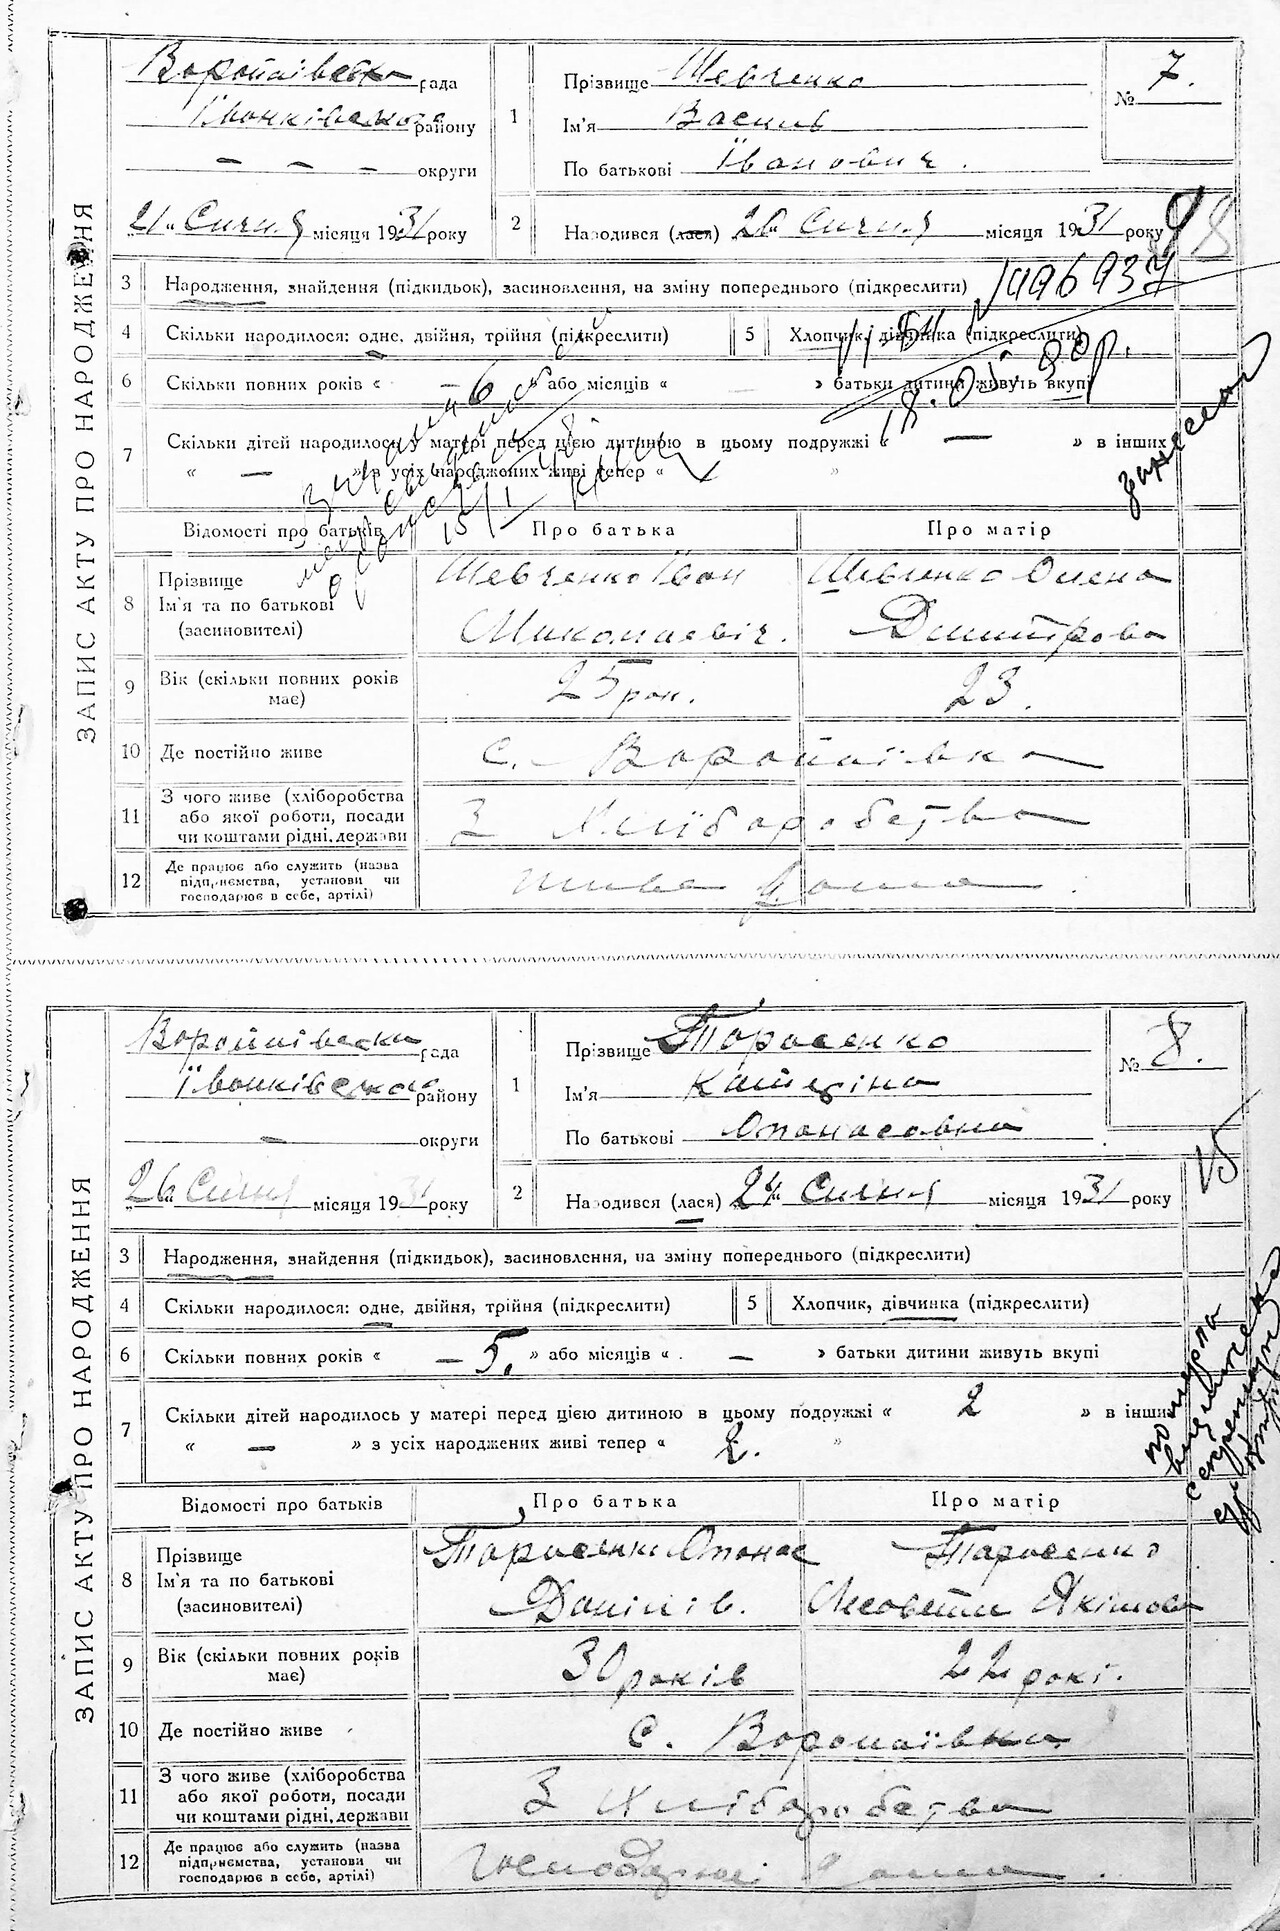 ЗАПИС АКТУ ПРО НАРОДЖЕННЯ
Воропаївска рада
Іванківського району
— — — округи
21 Січня місяця 1931 року
1 Прізвище Шевченко
Ім'я Василь
По батькові Іванович.
№ 7.
2 Народився (лася) 20 Січня місяця 1931 року
98
3 Народження, знайдення (підкидьок), засиновлення, на зміну попереднього (підкреслити)
4 Скільки народилося: одне, двійня, трійня (підкреслити) 5 Хлопчик, дівчинка (підкреслити)
6 Скільки повних років « – 6 » або місяців « — » батьки дитини живуть вкупі
7 Скільки дітей народилось у матері перед цією дитиною в цьому подружжі « — » в інших
« — » з усіх народжених живі тепер « »
18.05.
15/I
занесено
Відомості про батьків Про батька Про матір
8 Прізвище Ім'я та по батькові (засиновителі) Шевченко Іван Шевченко Олена
Миколаєвіч. Дмитрова
9 Вік (скільки повних років має) 25 рок. 23.
10 Де постійно живе с. Воропаївка
11 З чого живе (хліборобства або якої роботи, посади чи коштами рідні, держави З Хліборобства
12 Де працює або служить (назва підприємства, установи чи господарює в себе, артілі) живе дома.
ЗАПИС АКТУ ПРО НАРОДЖЕННЯ
Воропаївска рада
Іванківського району
— округи
26 Січня місяця 1931 року
1 Прізвище Тарасенко
Ім'я Катеріна
По батькові Опанасовна
№ 8.
2 Народився (лася) 24 Січня місяця 1931 року
15
3 Народження, знайдення (підкидьок), засиновлення, на зміну попереднього (підкреслити)
4 Скільки народилося: одне, двійня, трійня (підкреслити) 5 Хлопчик, дівчинка (підкреслити)
6 Скільки повних років « – 5. » або місяців « — » батьки дитини живуть вкупі
7 Скільки дітей народилось у матері перед цією дитиною в цьому подружжі « 2 » в інших
« — » з усіх народжених живі тепер « 2. »
померла
Відомості про батьків Про батька Про матір
8 Прізвище Ім'я та по батькові (засиновителі) Тарасенко Опанас Тарасенко
Данілів. Лісовета Якімова
9 Вік (скільки повних років має) 30 років 22 рокі.
10 Де постійно живе с. Воропаївка
11 З чого живе (хліборобства або якої роботи, посади чи коштами рідні, держави З Хліборобства
12 Де працює або служить (назва підприємства, установи чи господарює в себе, артілі) Господарює дома.